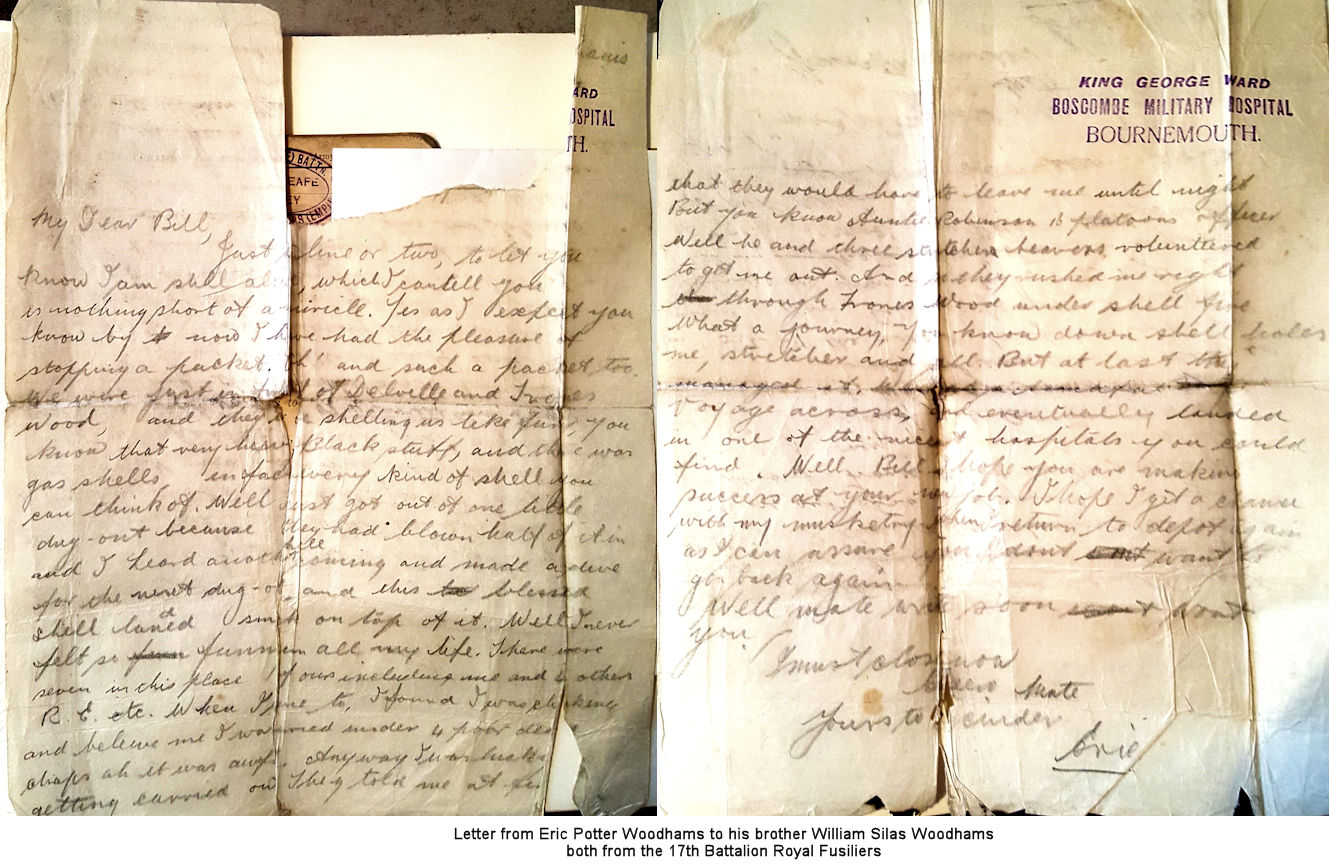 hacis
ARD
OSPITAL
TH.
) BATTN.
EAFE
EY
(EMPI
My Dear Bill,
Just a line or two, to let you
know I am still alive, which I can tell you
is nothing short of a miricle. Yes as I expect you
know by now I have had the pleasure of
stopping a packet. Oh! and such a packet too.
We were just in front of Delville and Trones
Wood, and they shelling us like fury, you
know that very heavy Black stuff, and there was
gas shells, in fact every kind of shell you
can think of. Well just got out of one little
dug-out because they had blown half of it in
and I heard another shell coming and made a dive
for the next dug-out, and this blessed
shell landed smck on top of it. Well I never
felt so funny in all my life. There were
seven in this place of ours including me and 4 others
R. E. etc. When I came to, I found I was choking
and beleive me I was buried under 4 poor dead
chaps ah it was awf. Anyway I was lucky
getting carried out They told me at first
KING GEORGE WARD
BOSCOMBE MILITARY HOSPITAL
BOURNEMOUTH.
that they would have to leave me until night
But you know Auntie Robinson 16 platoons officer
Well he and three stretcher bearers volunttered
to get me out. And they rushed me right
through Trones Wood under shell fire
What a journey, you know down shell holes
me, stretcher and all. But at last they
managed it.
Voyage across, and eventually landed
in one of the nicest hospitals you could
find. Well Bill I hope you are making
success at your new job. I hope I get a chance
with my musketry when I return to depot again
as I can assure you I dont want to
go back again
Well mate write soon wont
you
I must close now
Cheero Mate
Yours to a cinder
Eric
Letter from Eric Potter Woodhams to his brother William Silas Woodhams
both from the 17th Battalion Royal Fusiliers